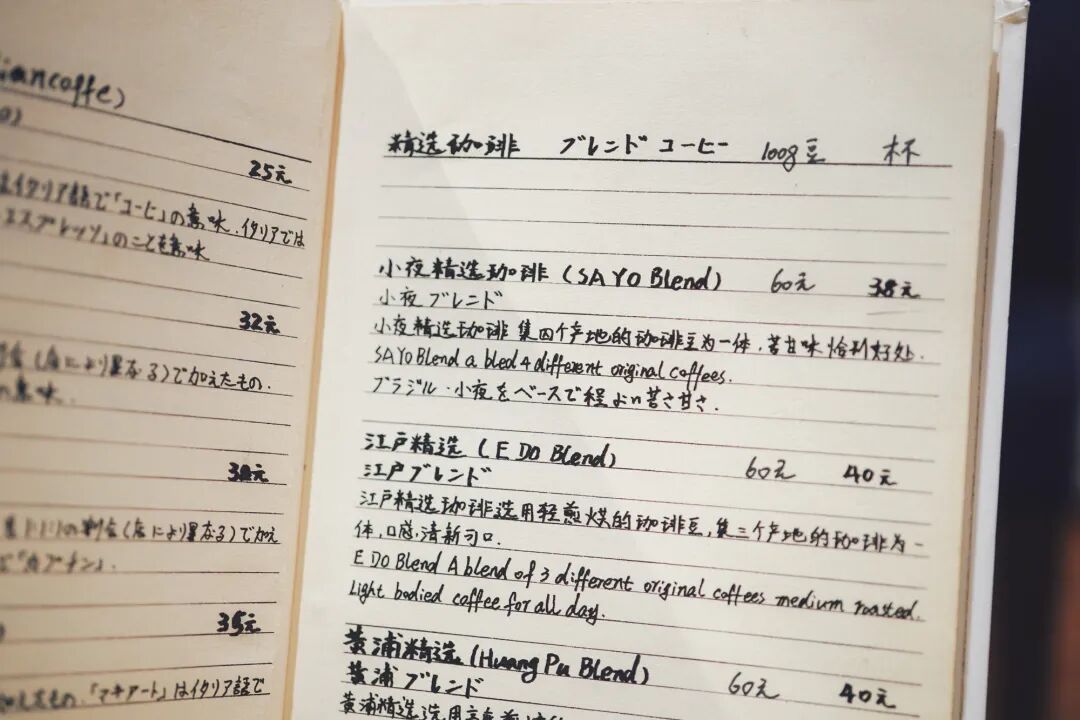 iancoffe)
25元
イタリア語で「コーヒ」の意味.イタリアでは
エスプレッソ」のことを意味
32元
(店により異なる)で加えたもの.
の意味.
30元
の割合(店により異なる)で加え
35元
「マキアート」はイタリア語で
精选珈琲 ブレンド コーヒー 100g豆 杯
小夜精选珈琲 (SAYO Blend) 60元 38元
小夜 ブレンド
小夜精选珈琲 集四个产地的珈琲豆为一体,苦甘味恰到好处.
SAYO Blend a bled 4 different original coffees.
ブラジル・小夜をベースで程よい苦さ甘さ.
江戸精选 (EDO Blend) 60元 40元
江戸ブレンド
江戸精选珈琲选用轻煎焙的珈琲豆,集三个产地的珈琲为一
体,口感,清新可口.
EDO Blend A blend of 3 different original coffees medium roasted.
Light bodied coffee for all day.
黄浦精选 (Huang Pu Blend) 60元 40元
黄浦 ブレンド
黄浦精选选用